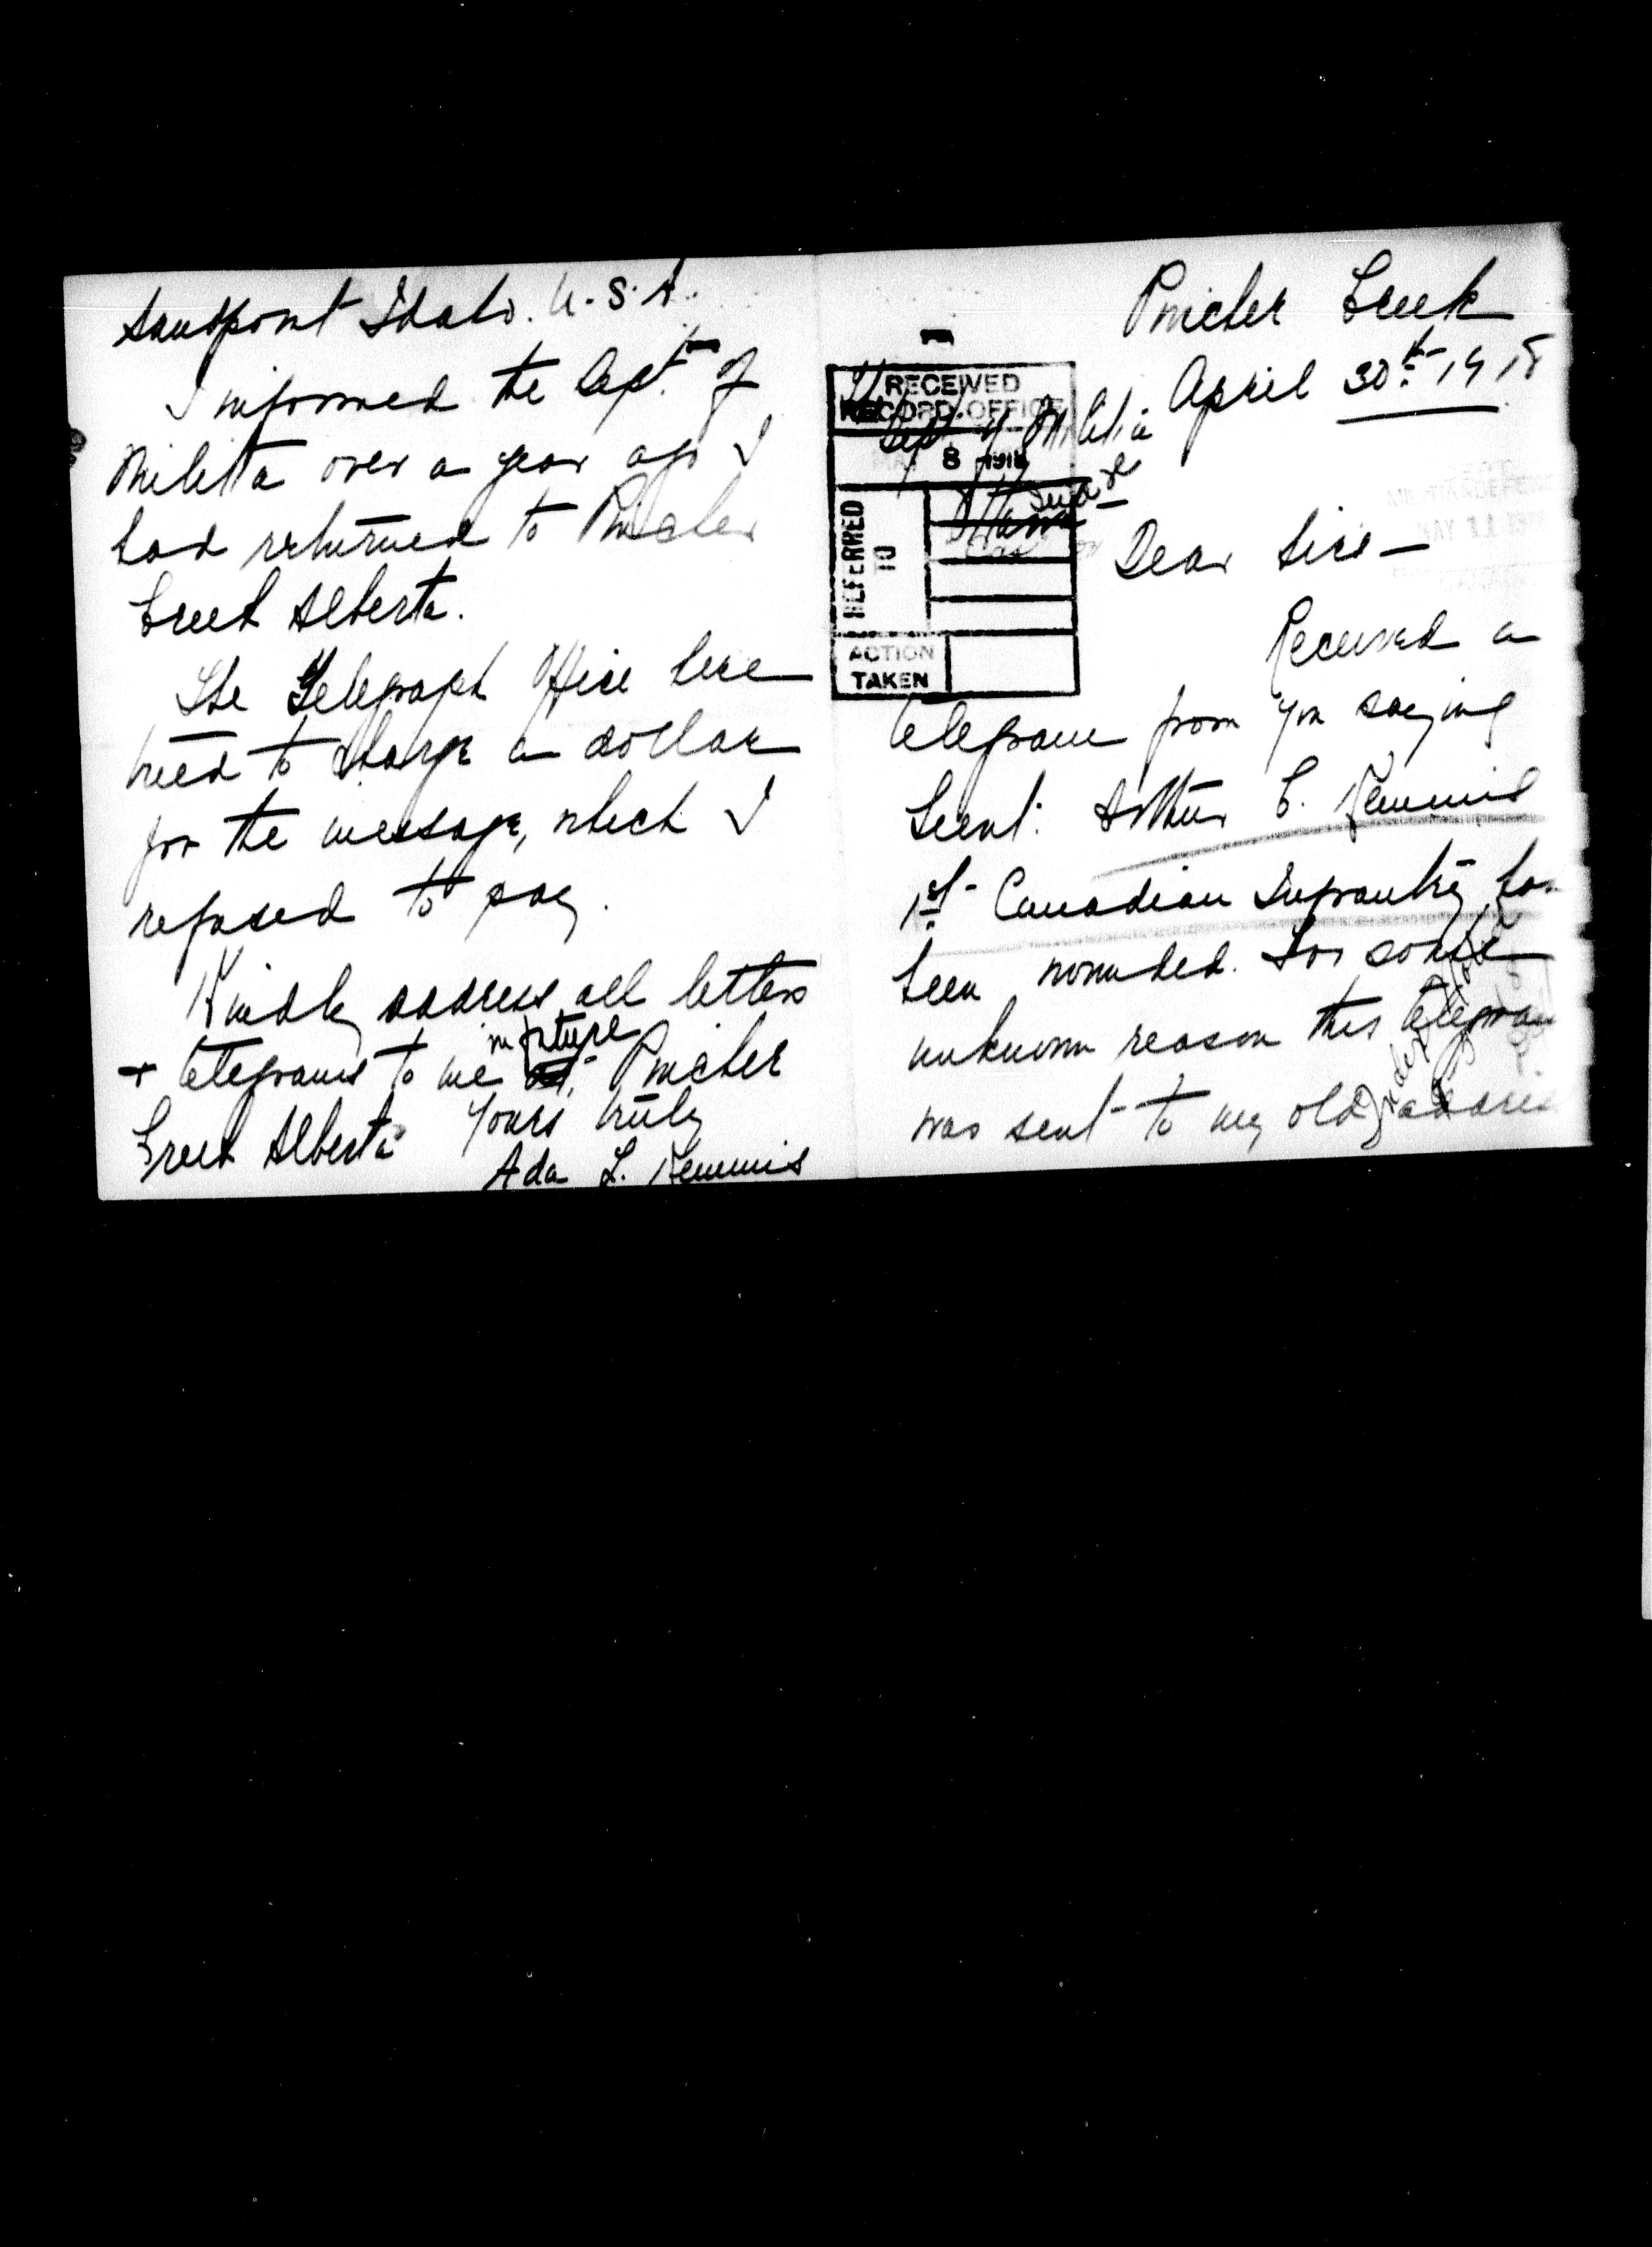 Pincher Creek
April 30th 1918
RECEIVED
RECORD OFFICE
Dept of Militia
8 1918
Ottawa
REFERRED
TO
ACTION
TAKEN
Dear Sirs—
Received a
telegram from you saying
Lieut. Arthur C. Kemmis
1st Canadian Infantry has
been wounded. For some
unknown reason this telegram
was sent to my old address
Sandpoint Idaho. U.S.A.
I informed the Dept. of
Militia over a year ago I
had returned to Pincher
Creek Alberta.
The Telegraph Office here
tried to charge a dollar
for the message, which I
refused to pay.
Kindly address all letters
+ telegrams to me in future Pincher
Creek Alberta Yours truly
Ada L. Kemmis